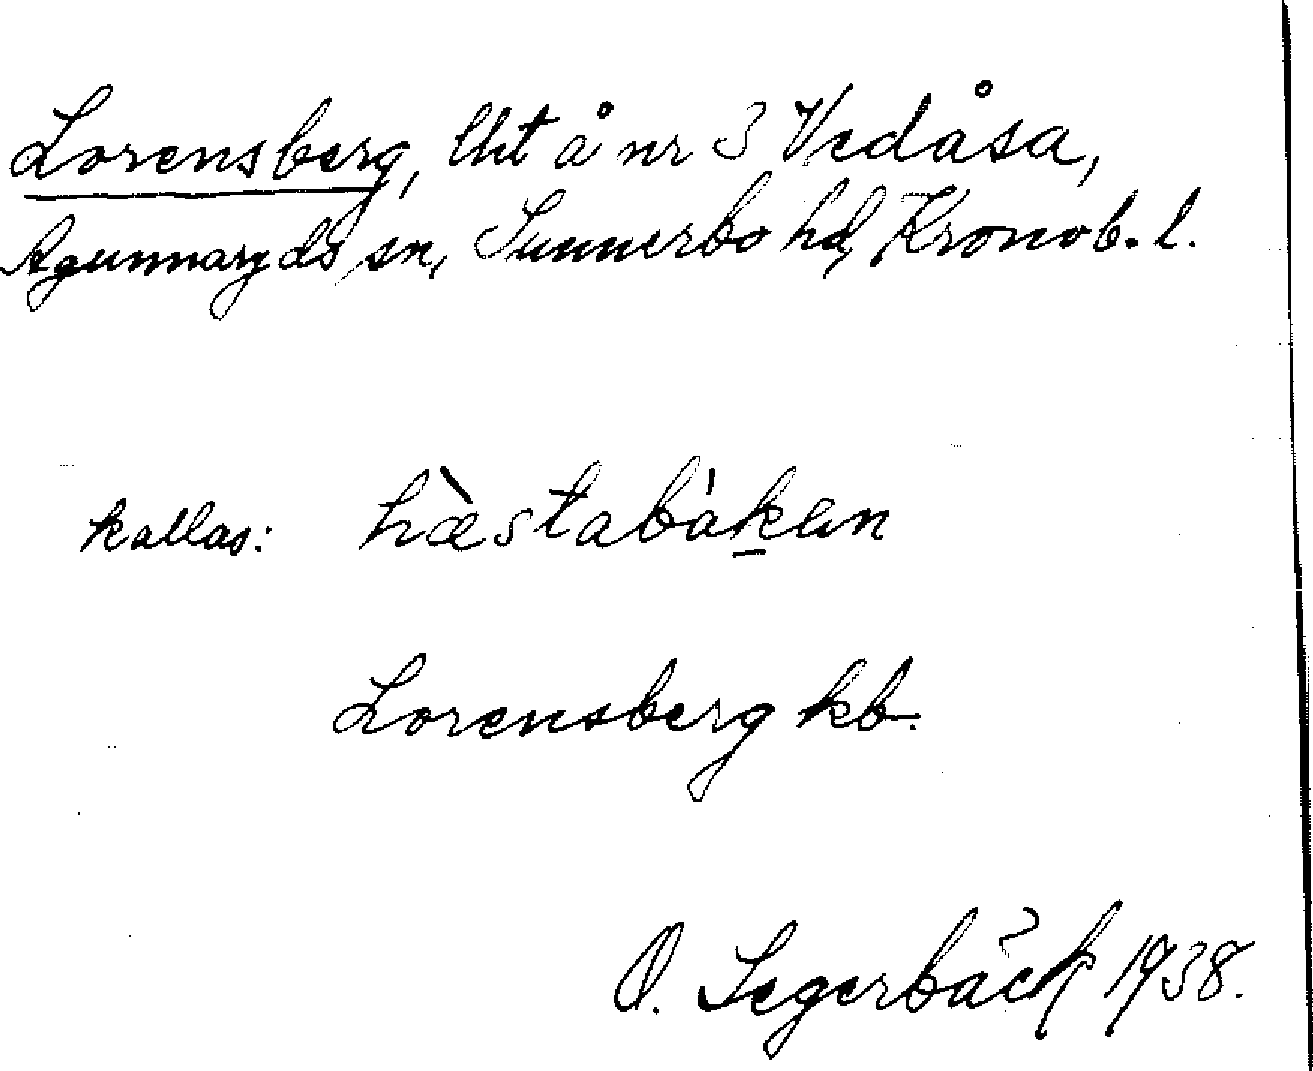 Lorensberg, lht å nr 3 Vedåsa,
Agunnaryds sn, Sunnerbo hd, Kronob. l.
kallas: hæ̀stabákan
Lorensberg kb.
O. Segerbäck 1938.